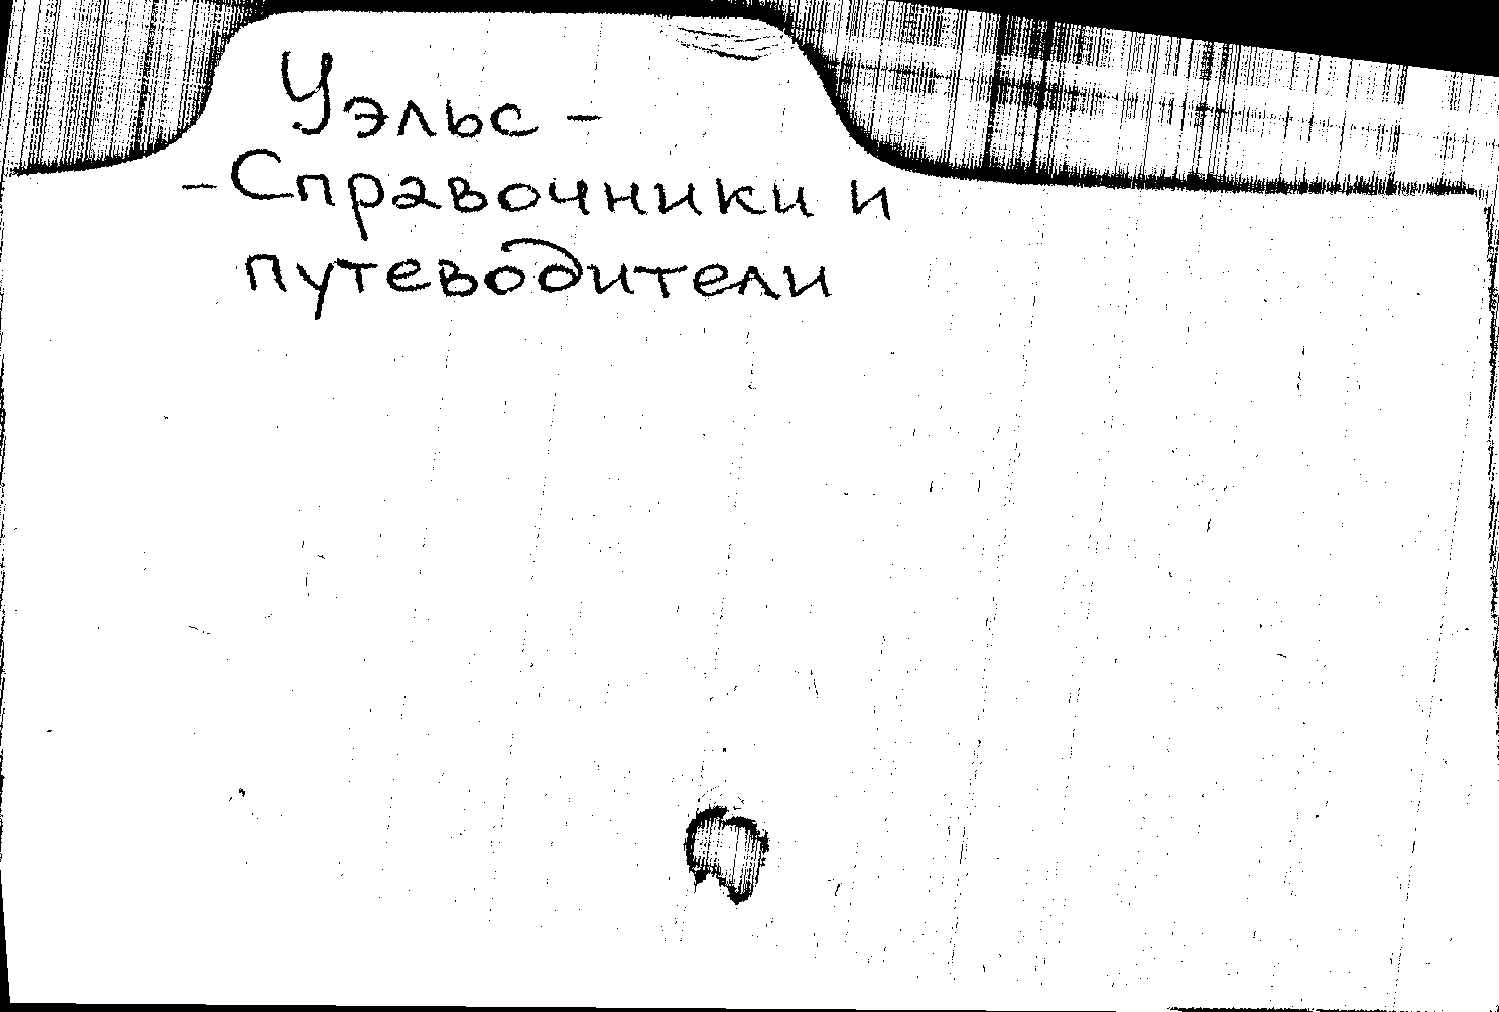 Уэльс -
- Справочники и
путеводители